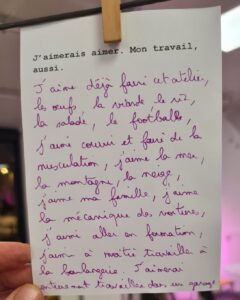 J'aimerais aimer. Mon travail,
aussi.
J'aime déjà faire cet atelier,
les œufs, la viande le riz,
la salade, le football,
j'aime courir et faire de la
musculation, j'aime la mer,
la montagne, la neige,
j'aime ma famille, j'aime
la mécanique des voitures,
j'aime aller en formation,
j'aime travailler à
la boulangerie. J'aimerai
travailler dans un garage